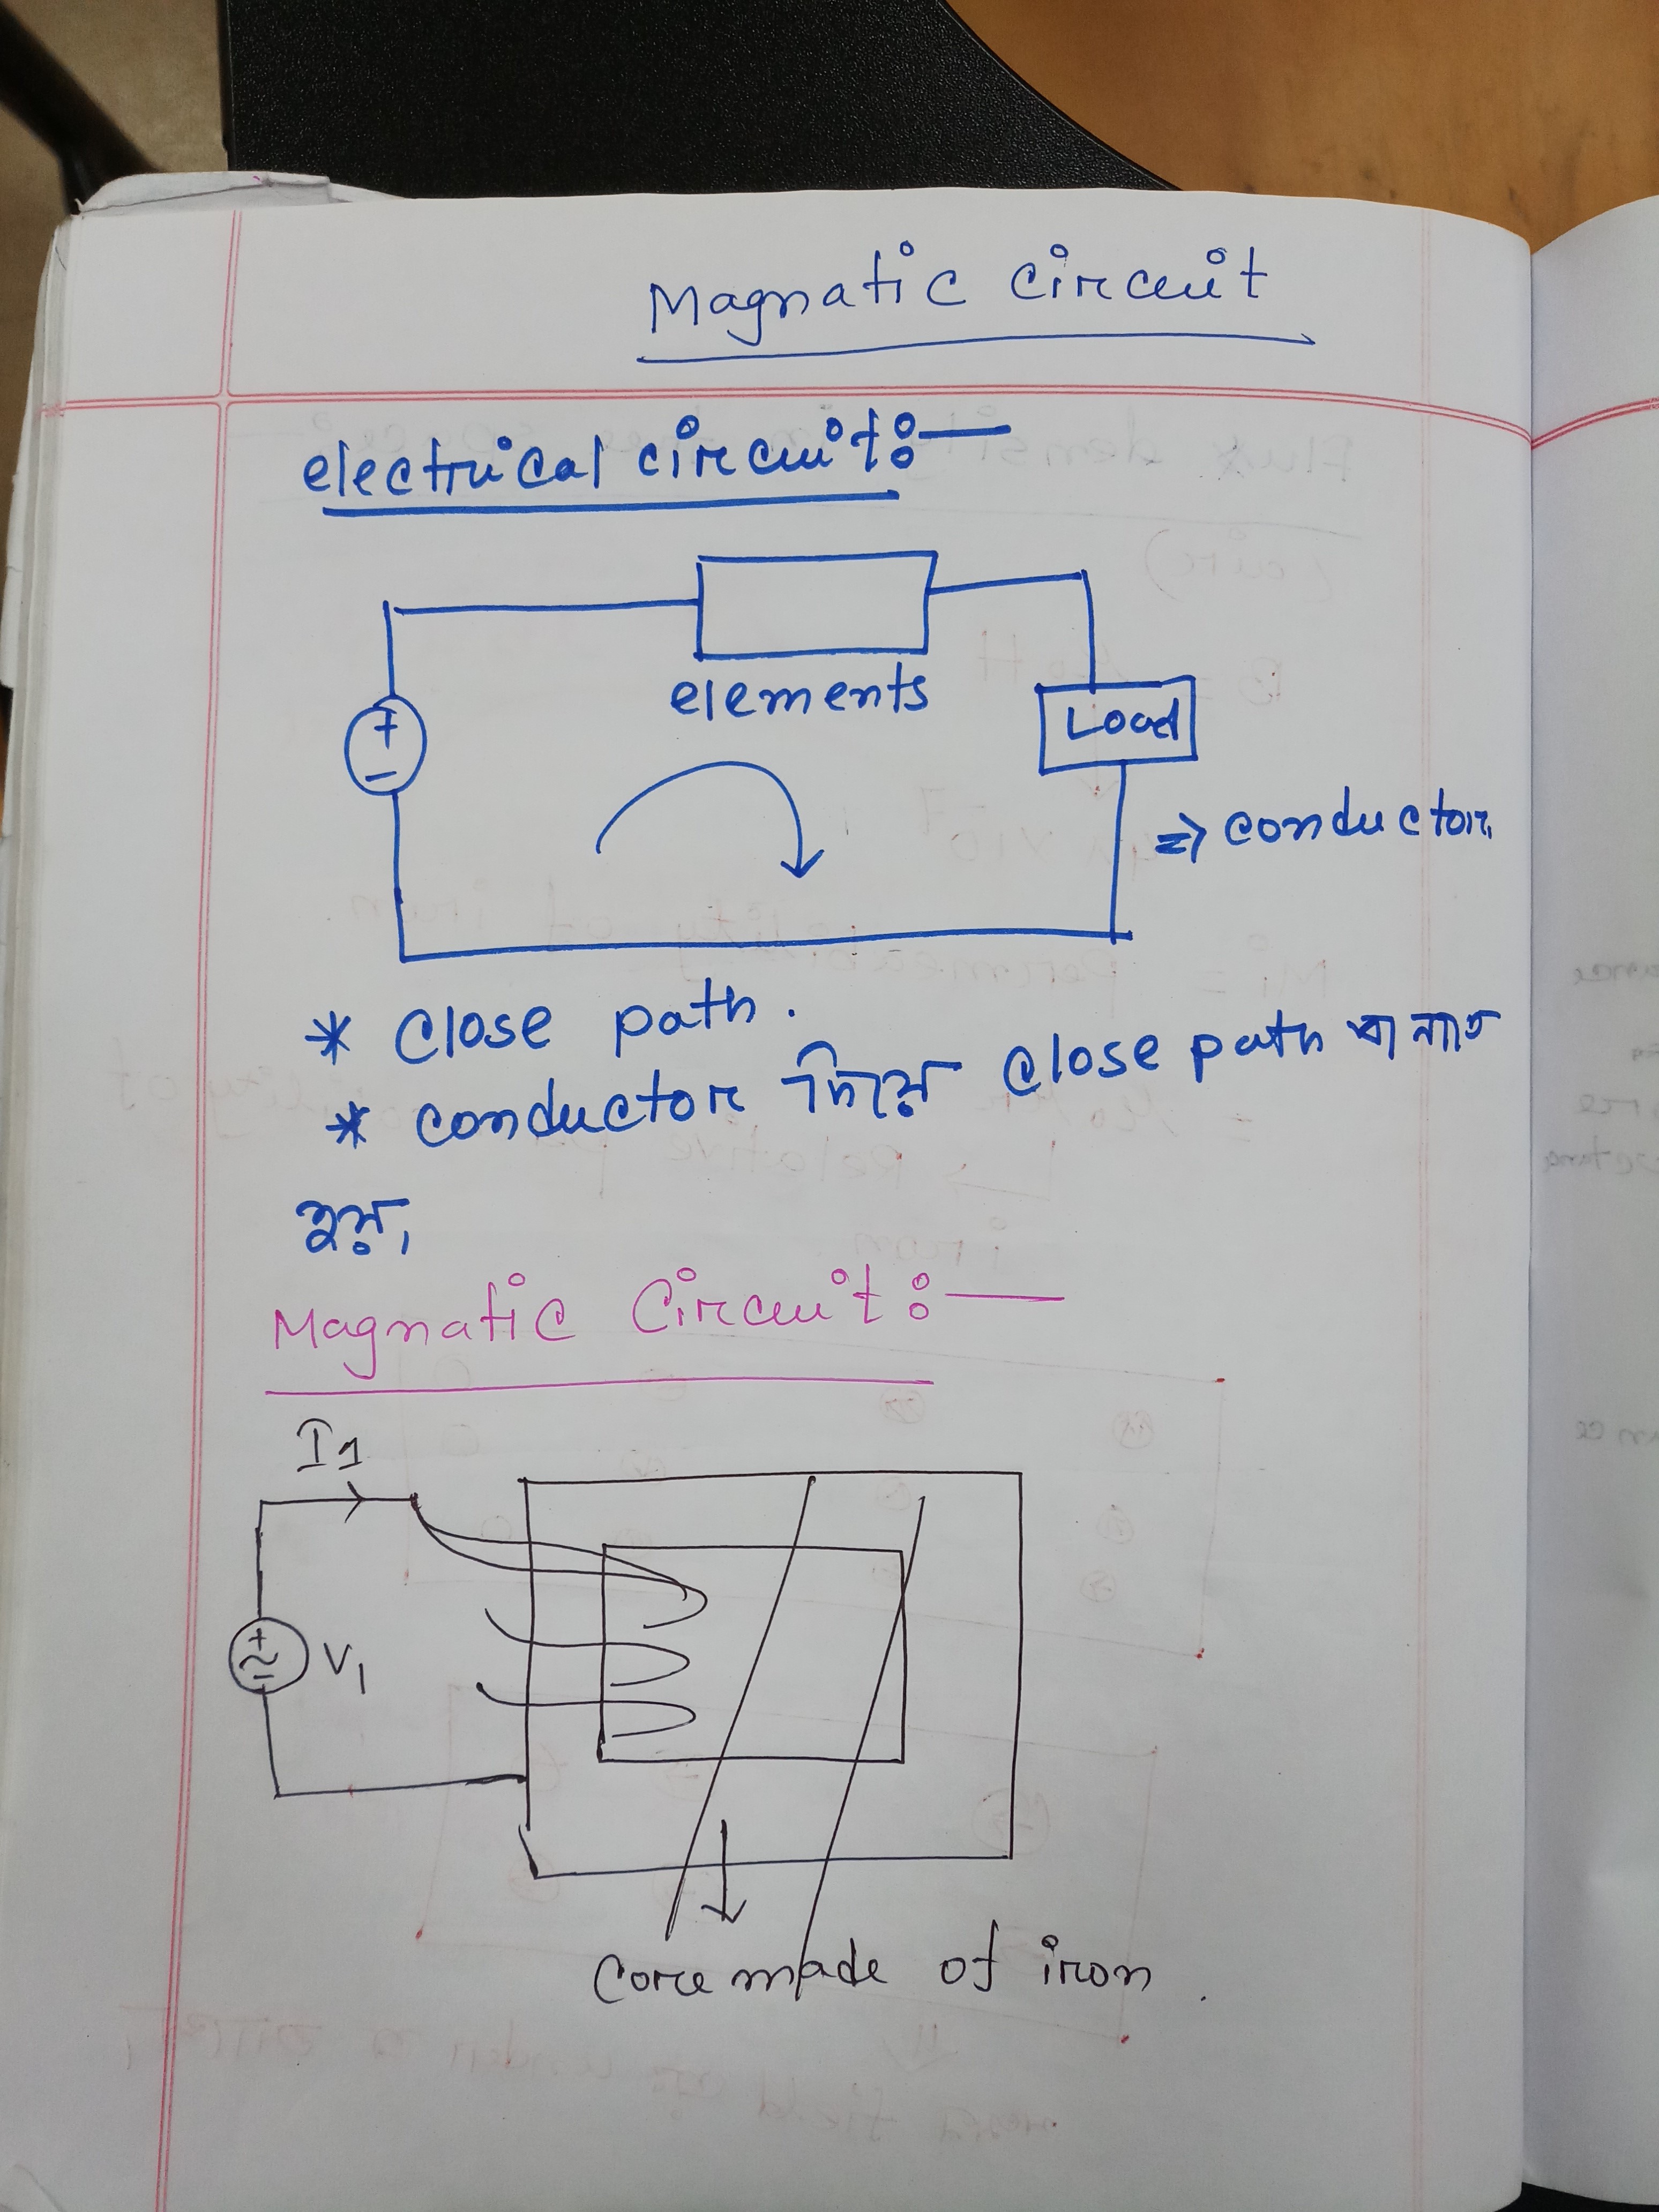 Magnatic circuit
electrical circuit:—
elements
+
−
Load
⇒ conductor
* close path.
* conductor দিয়ে close path বানাত
হয়,
Magnatic Circuit:—
I1
+
~
−
V1
Core made of iron.